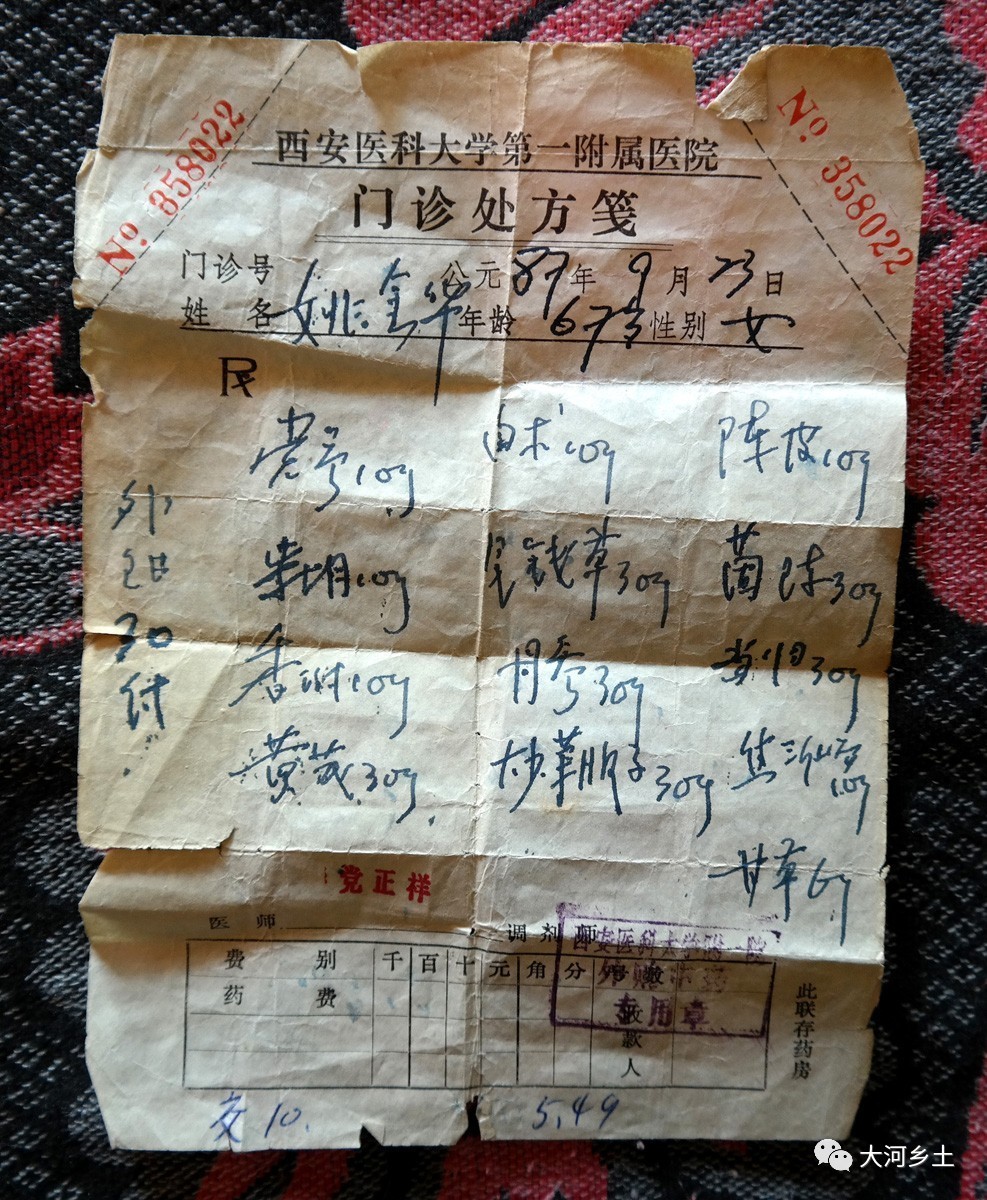 西安医科大学第一附属医院
门诊处方笺
No 358022
No 358022
门诊号 公元 87年 9月 23日
姓名 姚金华 年龄 67岁 性别 女
R
党参10g 白术10g 陈皮10g
柴胡10g 金钱草30g 茵陈30g
香附10g 丹参30g 当归30g
黄芪30g 炒莱服子30g 焦三仙各10g
甘草6g
外
30
付
党正祥
医师 调剂师
西安医科大学附一院
专用章
费别 千 百 十 元 角 分 号数
药费
收款人
此联存药房
交10. 5.49
大河乡土